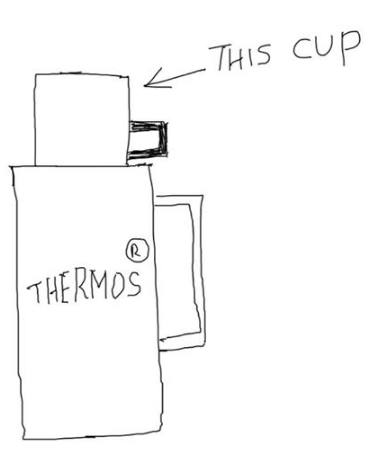 THIS CUP
®
THERMOS